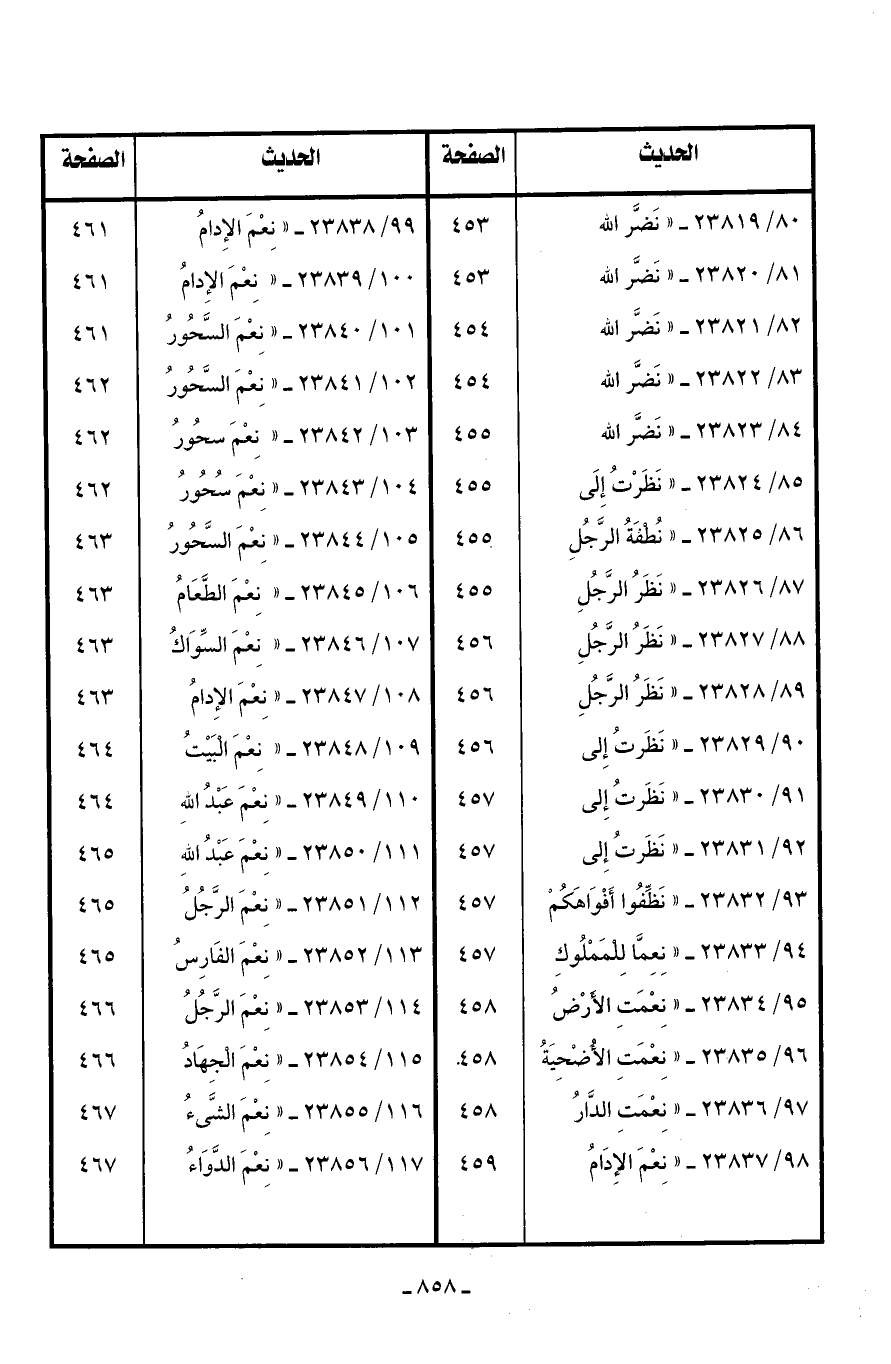 الحديث الصفحة الحديث الصفحة
٨٠/ ٢٣٨١٩ ـ « نَضَّر الله ٤٥٣ ٩٩/ ٢٣٨٣٨ ـ « نِعْمَ الإِدامُ ٤٦١
٨١/ ٢٣٨٢٠ ـ « نَضَّر الله ٤٥٣ ١٠٠/ ٢٣٨٣٩ ـ « نِعْمَ الإِدامُ ٤٦١
٨٢/ ٢٣٨٢١ ـ « نَضَّر الله ٤٥٤ ١٠١/ ٢٣٨٤٠ ـ « نِعمَ السَّحُورُ ٤٦١
٨٣/ ٢٣٨٢٢ ـ « نَضَّر الله ٤٥٤ ١٠٢/ ٢٣٨٤١ ـ « نِعْمَ السَّحُورُ ٤٦٢
٨٤/ ٢٣٨٢٣ ـ « نَضَّر الله ٤٥٥ ١٠٣/ ٢٣٨٤٢ ـ « نِعْمَ سحُورُ ٤٦٢
٨٥/ ٢٣٨٢٤ ـ « نَظَرْتُ إِلَى ٤٥٥ ١٠٤/ ٢٣٨٤٣ ـ « نِعمَ سُحُورُ ٤٦٢
٨٦/ ٢٣٨٢٥ ـ « نُطْفَةُ الرَّجُلِ ٤٥٥ ١٠٥/ ٢٣٨٤٤ ـ « نِعْمَ السَّحُورُ ٤٦٣
٨٧/ ٢٣٨٢٦ ـ « نَظَرُ الرَّجُلِ ٤٥٥ ١٠٦/ ٢٣٨٤٥ ـ « نِعْمَ الطَّعَامُ ٤٦٣
٨٨/ ٢٣٨٢٧ ـ « نَظَرُ الرَّجُلِ ٤٥٦ ١٠٧/ ٢٣٨٤٦ ـ « نِعمَ السِّوَاكُ ٤٦٣
٨٩/ ٢٣٨٢٨ ـ « نَظَرُ الرَّجُلِ ٤٥٦ ١٠٨/ ٢٣٨٤٧ ـ « نِعْمَ الإِدامُ ٤٦٣
٩٠/ ٢٣٨٢٩ ـ « نَظَرتُ إِلى ٤٥٦ ١٠٩/ ٢٣٨٤٨ ـ « نِعْمَ الْبَيْتُ ٤٦٤
٩١/ ٢٣٨٣٠ ـ « نَظَرتُ إِلى ٤٥٧ ١١٠/ ٢٣٨٤٩ ـ « نِعْمَ عَبْدُ اللهِ ٤٦٤
٩٢/ ٢٣٨٣١ ـ « نَظَرتُ إِلى ٤٥٧ ١١١/ ٢٣٨٥٠ ـ « نِعْمَ عَبْدُ اللهِ ٤٦٥
٩٣/ ٢٣٨٣٢ ـ « نَظِّفُوا أَفْوَاهَكُمْ ٤٥٧ ١١٢/ ٢٣٨٥١ ـ « نِعْمَ الرَّجُلُ ٤٦٥
٩٤/ ٢٣٨٣٣ ـ « نِعِمَّا لِلْمَمْلُوكِ ٤٥٧ ١١٣/ ٢٣٨٥٢ ـ « نِعْمَ الفَارِسُ ٤٦٥
٩٥/ ٢٣٨٣٤ ـ « نِعْمَتِ الأَرْضُ ٤٥٨ ١١٤/ ٢٣٨٥٣ ـ « نِعْمَ الرَّجُلُ ٤٦٦
٩٦/ ٢٣٨٣٥ ـ « نِعْمَتِ الأُضْحِيَةُ ٤٥٨ ١١٥/ ٢٣٨٥٤ ـ « نِعْمَ الْجِهَادُ ٤٦٦
٩٧/ ٢٣٨٣٦ ـ « نِعْمَتِ الدَّارُ ٤٥٨ ١١٦/ ٢٣٨٥٥ ـ « نِعْمَ الشَّىءُ ٤٦٧
٩٨/ ٢٣٨٣٧ ـ « نِعْمَ الإِدَامُ ٤٥٩ ١١٧/ ٢٣٨٥٦ ـ « نِعْمَ الدَّوَاءُ ٤٦٧
ـ ٨٥٨ ـ